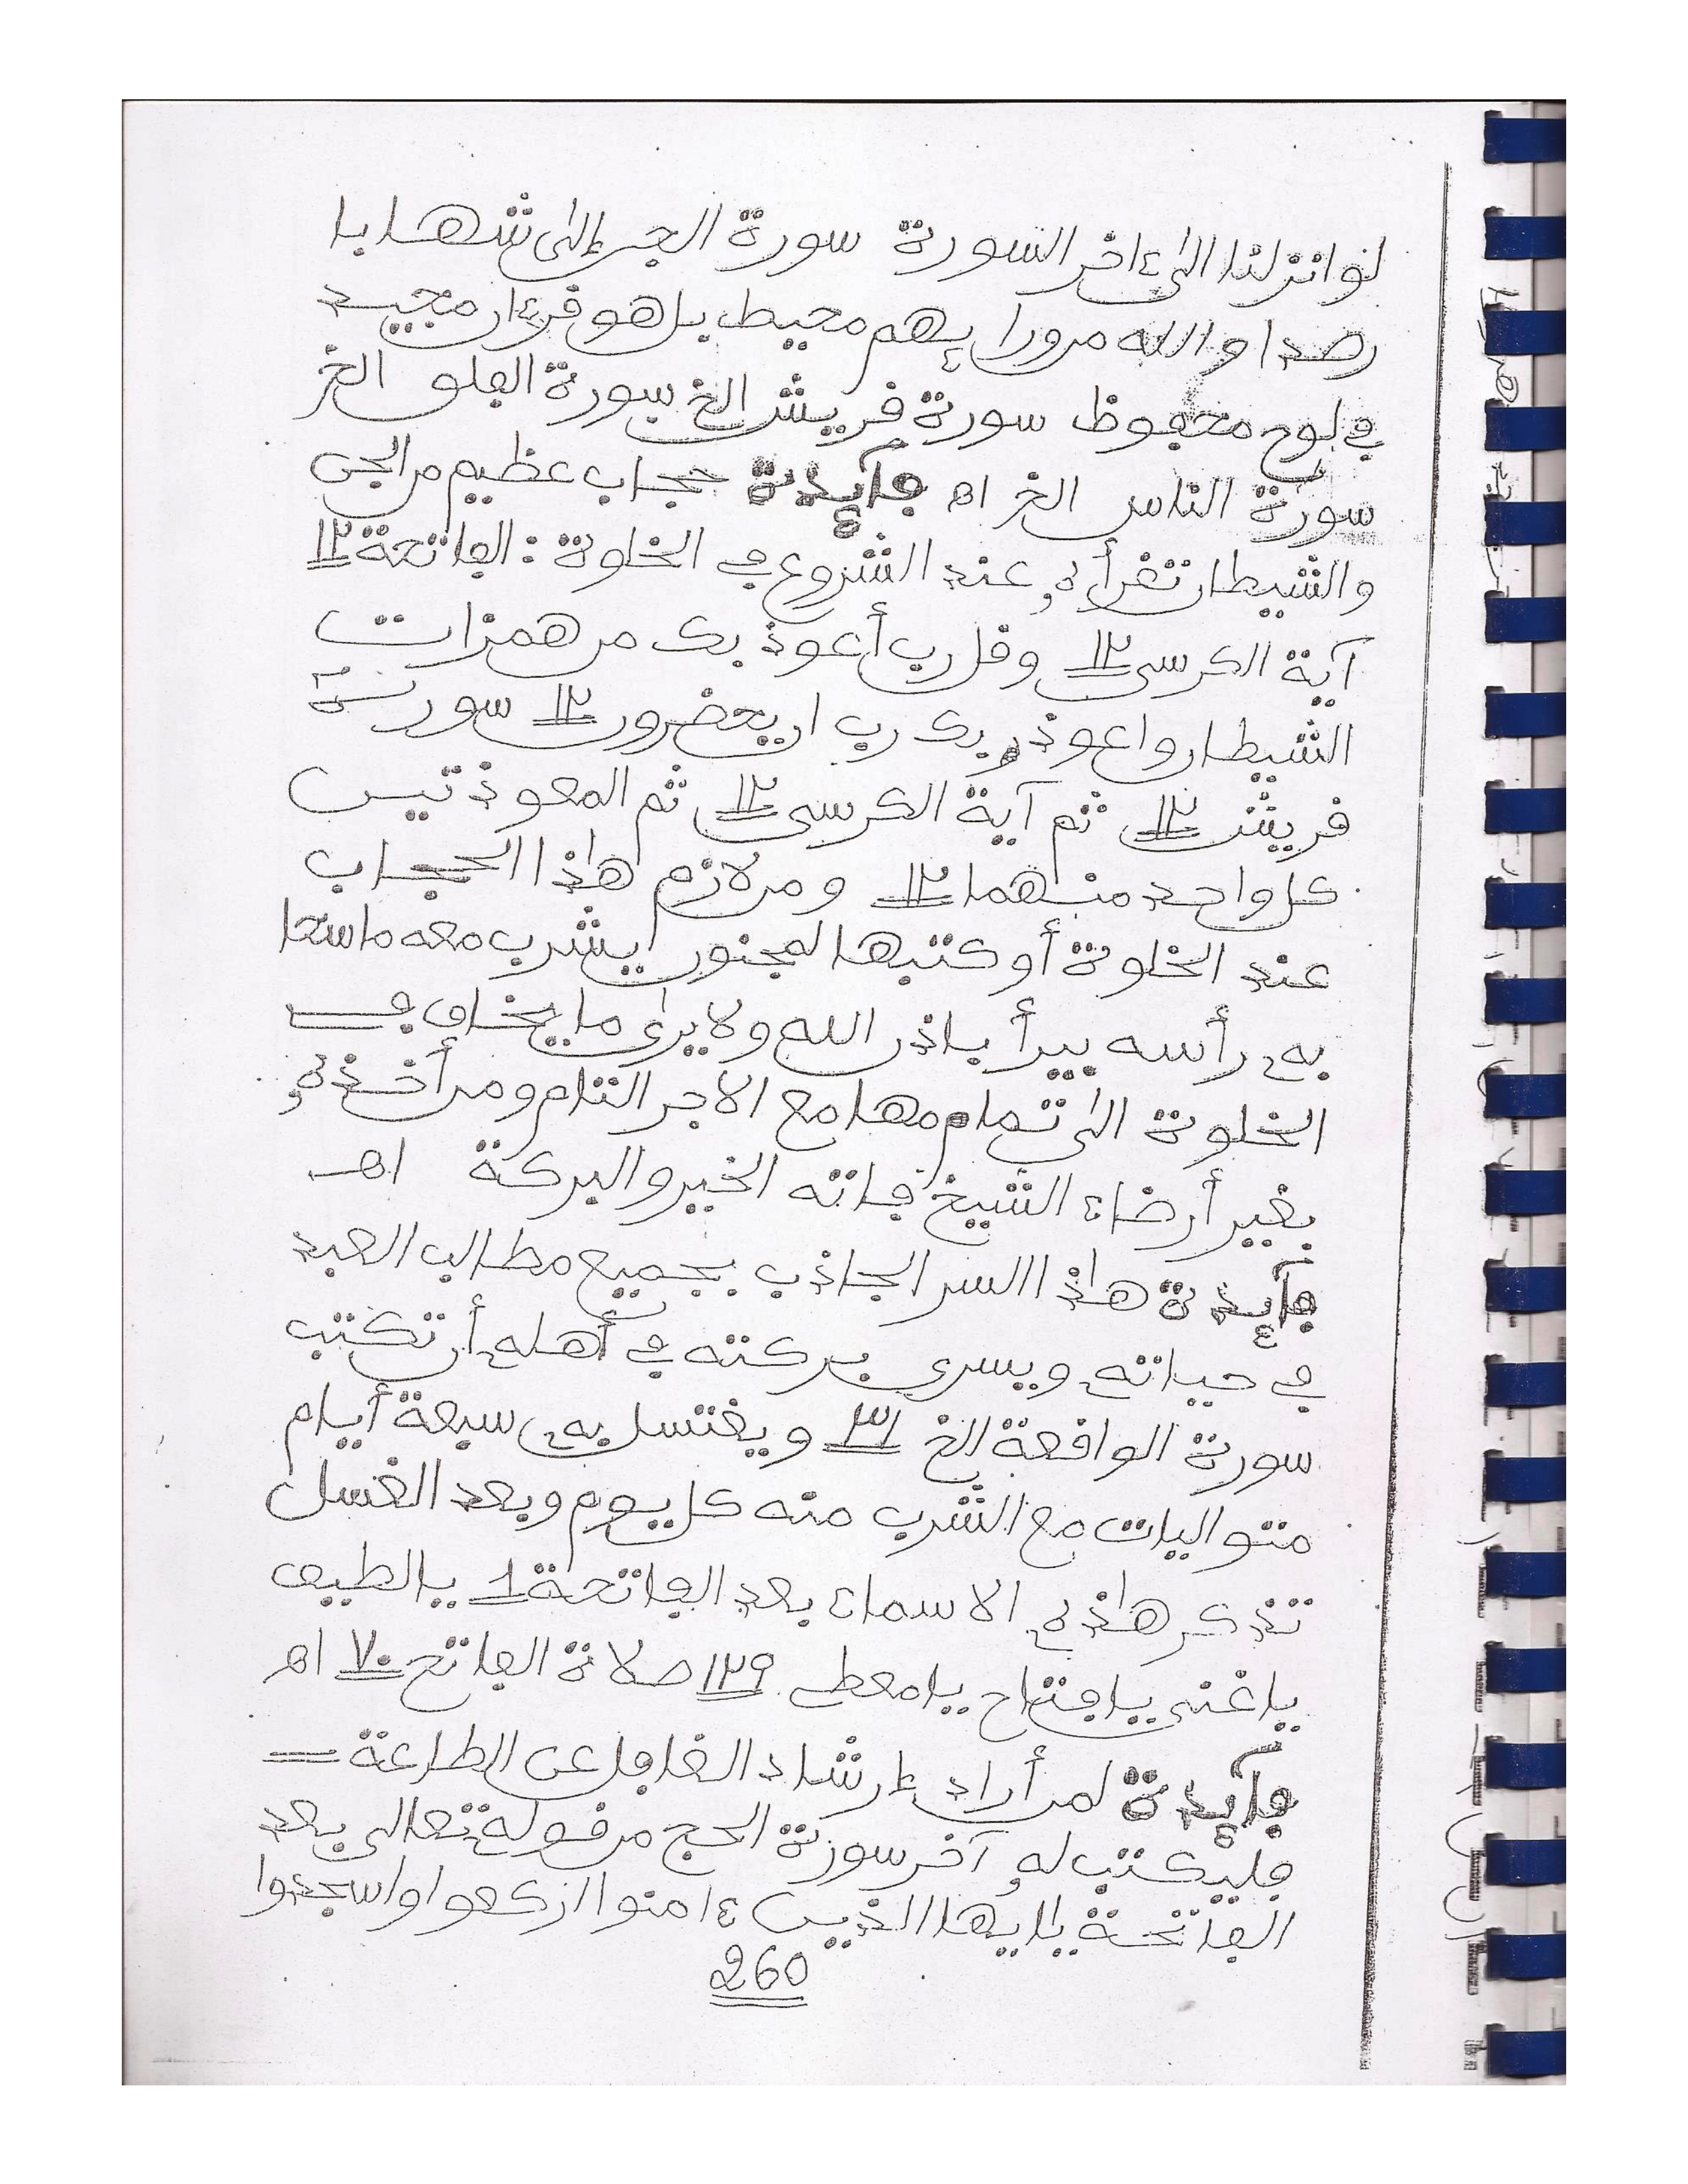 لوانزلنا الى ءاخر السورة سورة الجن إلى شهابا
رصدا والله من ورايهم محيط بل هو قرءان مجيد
في لوح محفوظ سورة قريش الخ سورة الفلق الخ
سورة الناس الخ اه فآيٕدة حجاب عظيم من الجن
والشيطان تقرأه عند الشروع في الخلوة : الفاتحة ١٢
آية الكرسي ١٢ وقل رب أعوذ بك من همزات
الشيطان واعوذ بك رب ان يحضرون ١٢ سورة
قريش ١٢ ثم آية الكرسي ١٢ ثم المعوذتين
كل واحد منهما ١٢ ومن لازم هاذا الحجاب
عند الخلوة أو كتبها لمجنون يشرب معه ماسحا
به رأسه يبرأ باذن الله ولا يرى ما يخاف في
الخلوة الى تمامها مع الاجر التام ومن أخذه
بغير أرضاء الشيخ فاته الخير والبركة اهـ
فآيٕدة هاذا السر الجاذب بجميع مطالب العبد
في حياته ويسري بركته في أهله أن تكتب
سورة الواقعة الخ ٣١ ويغتسل به سبعة أيام
متواليات مع الشرب منه كل يوم وبعد الغسل
تذكر هاذه الاسماء بعد الفاتحة 1 يالطيف
ياغني يافتاح يامعطي ١٢٩ صلاة الفاتح ٧٠ اه
فآيٕدة لمن أراد إرشاد الغافل عن الطاعة =
فليكتب له آخر سورة الحج من قوله تعالى بعد
الفاتحة يايها الذين ءامنوا اركعوا واسجدوا
260